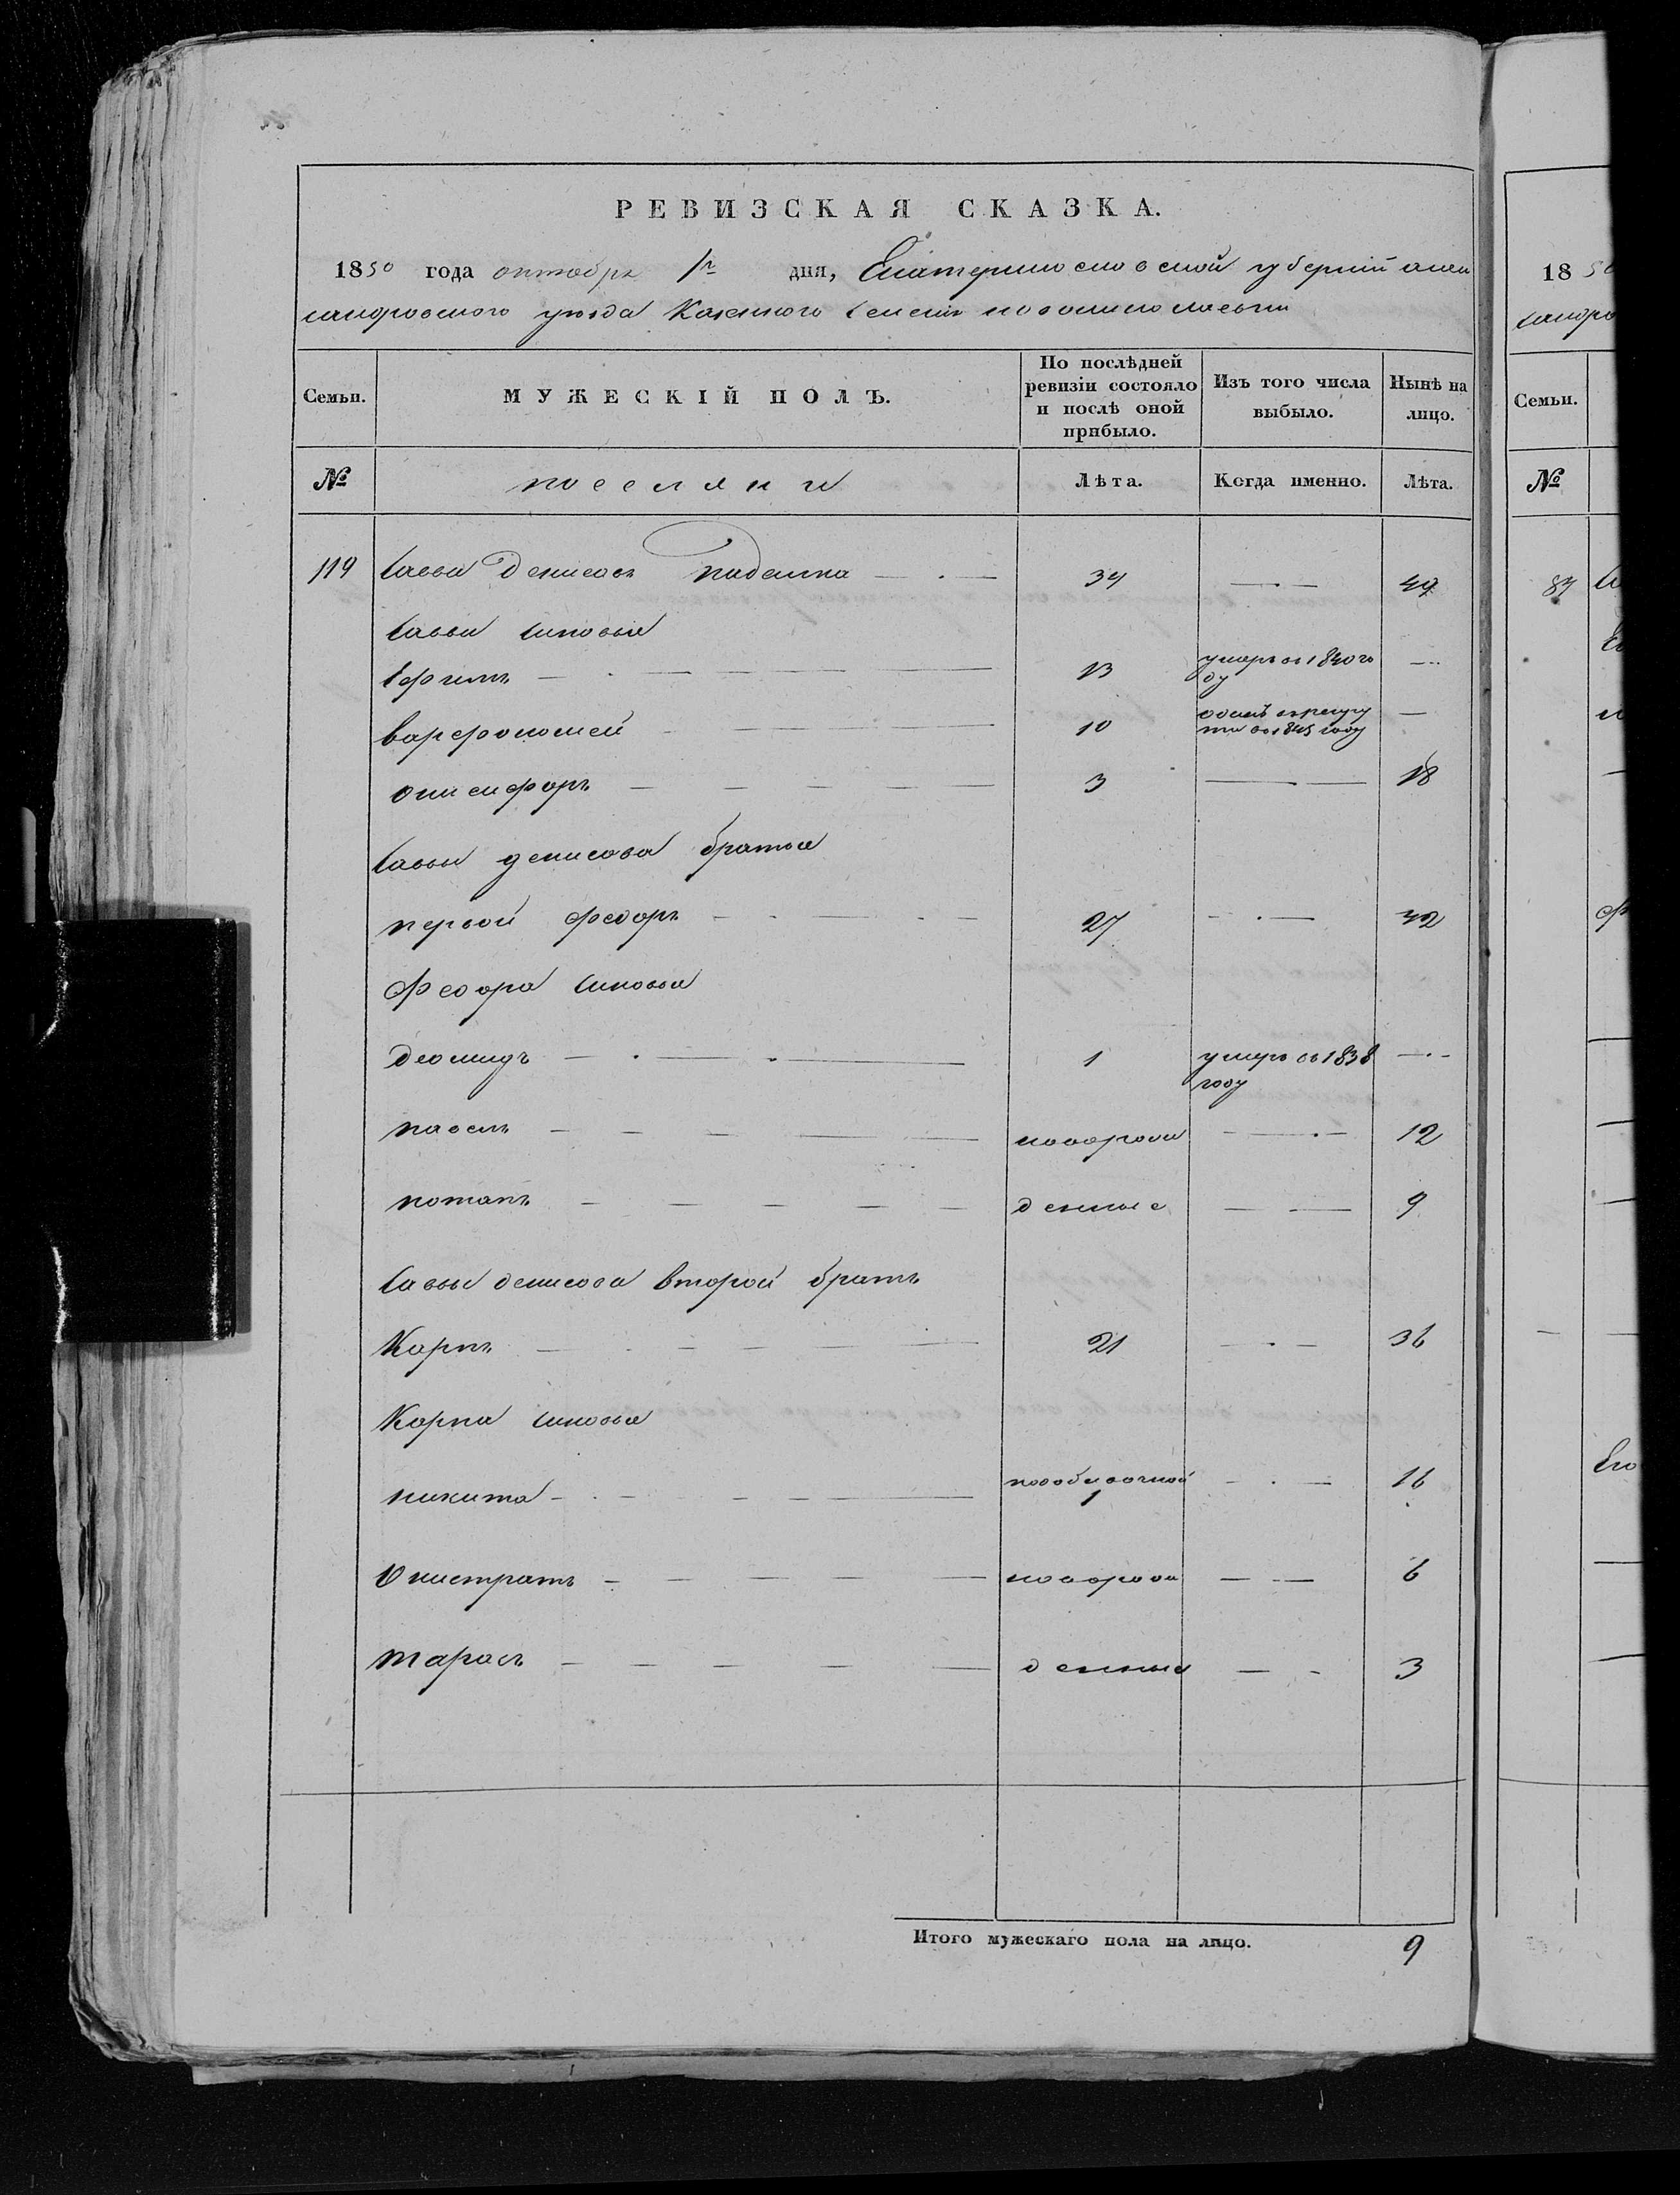 РЕВИЗСКАЯ СКАЗКА.
1850 года октября 1го дня, Екатеринославской губернии алек
сандровского уезда Казенного селения новониколаевки
Семьи. МУЖЕСКІЙ ПОЛЪ. По послѣдней ревизіи состояло и послѣ оной прибыло. Изъ того числа выбыло. Нынѣ на лицо.
№ поселяни Лѣта. Когда именно. Лѣта.
119 Савва Денисовъ 34 49
Саввы синовья
Ефимъ 13 умеръ въ 1840 го
ду
варфоломей 10 отданъ въ рекру
ти въ 1845 году
онисифоръ 3 18
Саввы денисова братья
первой федоръ 27 42
Федора синовья
Деомидъ 1 умеръ въ 1838
году
павелъ новорож 12
потапъ денные 9
Саввы денисова второй братъ
Карпъ 21 36
Карпа синовья
никита 1 16
Онистратъ новорож 6
тарасъ денные 3
Итого мужескаго пола на лицо. 9
18 50
сандро
Семьи.
№
87